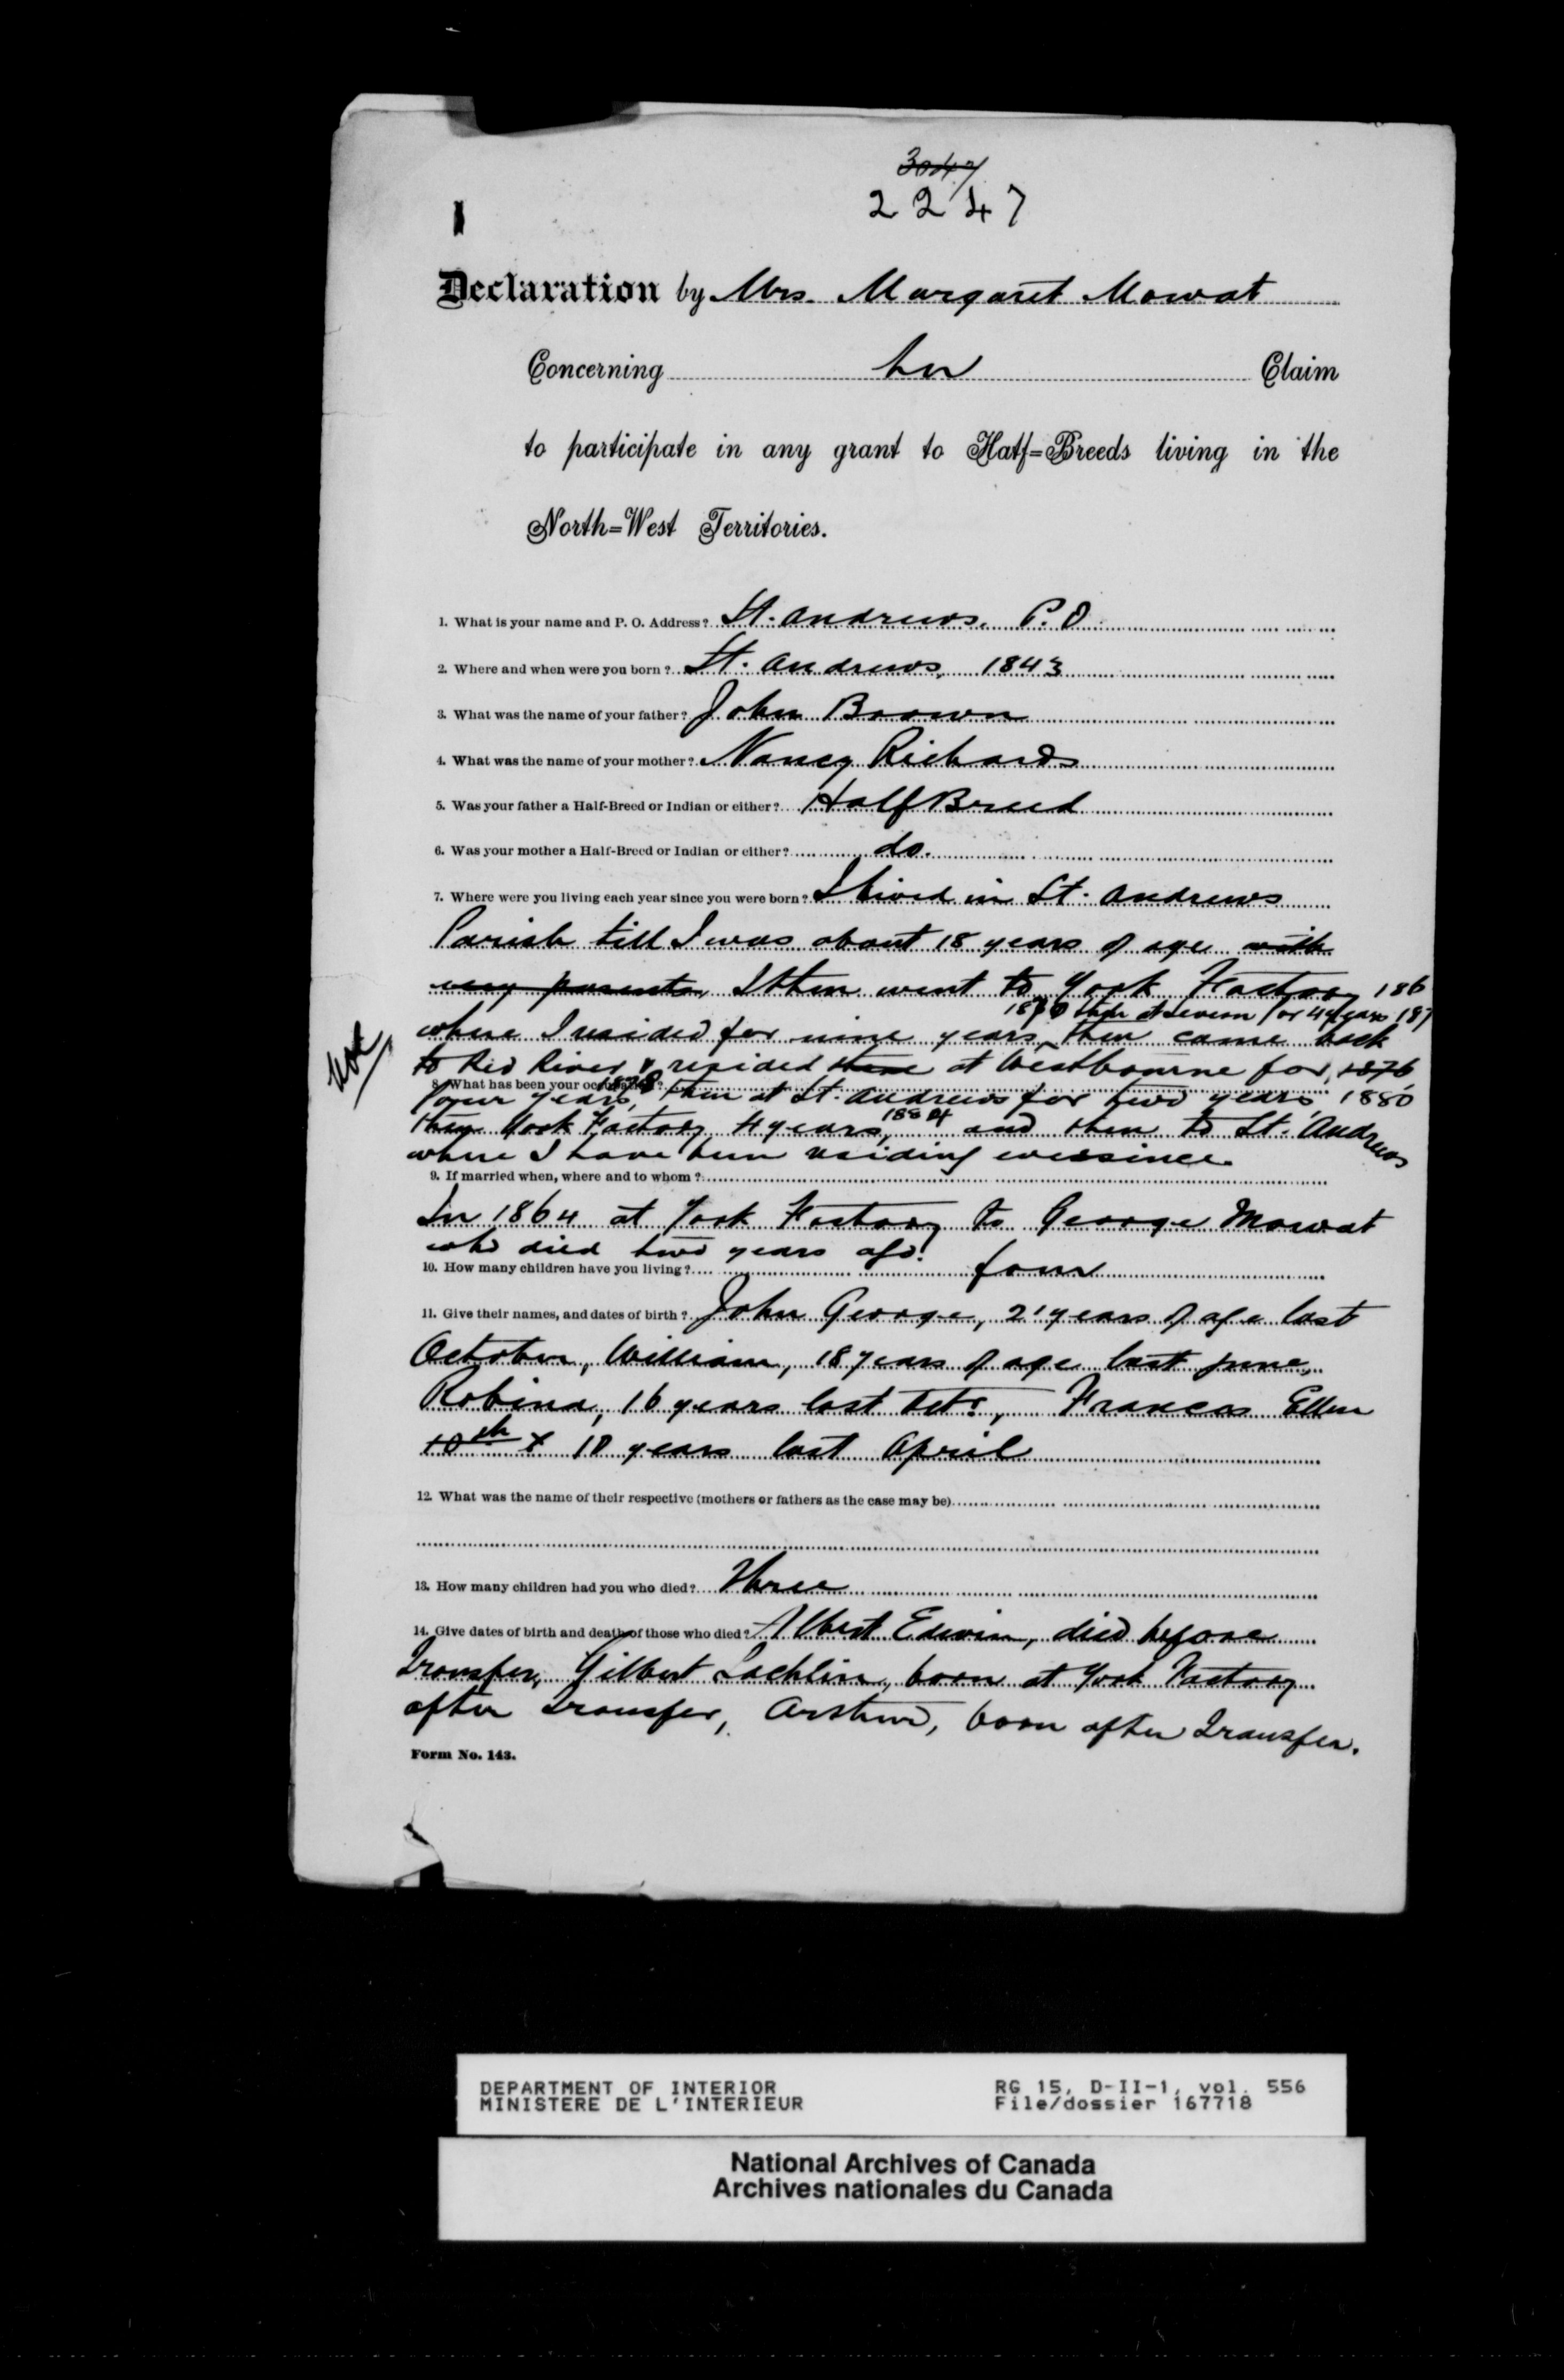 3047
2247
Declaration by Mrs. Margaret Mowat
Concerning her Claim
to participate in any grant to Half=Breeds living in the
North=West Territories.
1. What is your name and P. O. Address? St. Andrews. P.O
2. Where and when were you born? St. Andrews, 1843
3. What was the name of your father? John Brown
4. What was the name of your mother? Nancy Richards
5. Was your father a Half-Breed or Indian or either? Half Breed
6. Was your mother a Half-Breed or Indian or either? do.
7. Where were you living each year since you were born? I lived in St. Andrews
Parish till I was about 18 years of age with
my parents, I then went to York Factory 186
1870 then at Severn for 4 years 187
where I resided for nine years, then came back
to Red River & resided there at Westbourne for 1876
8. What has been your occupation?
four years, 1878 then at St. Andrews for two years 1880
then York Factory 4 years, 1884 and then to St. Andrews
where I have been residing ever since.
9. If married when, where and to whom?
In 1864 at York Factory to George Mowat
who died two years ago.
10. How many children have you living? four
11. Give their names, and dates of birth? John George, 21 years of age last
October, William, 18 years of age last June,
Robina, 16 years last Oct., Frances Ellen
10th 10 years last April
12. What was the name of their respective (mothers or fathers as the case may be)
13. How many children had you who died? Three
14. Give dates of birth and death of those who died? Albert Edwin, died before
Transfer, Gilbert Lachlin, born at York Factory
after Transfer, Arthur, born after Transfer.
Form No. 143.
DEPARTMENT OF INTERIOR
MINISTERE DE L'INTERIEUR
RG 15, D-II-1, vol. 556
File/dossier 167718
National Archives of Canada
Archives nationales du Canada